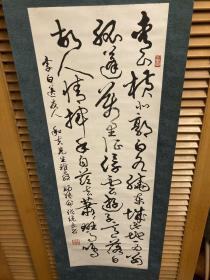 青山橫北郭白水繞東城此地一為別
孤蓬萬里征浮雲遊子意落日
故人情揮手自茲去蕭蕭班馬鳴
李白送友人 先生雅